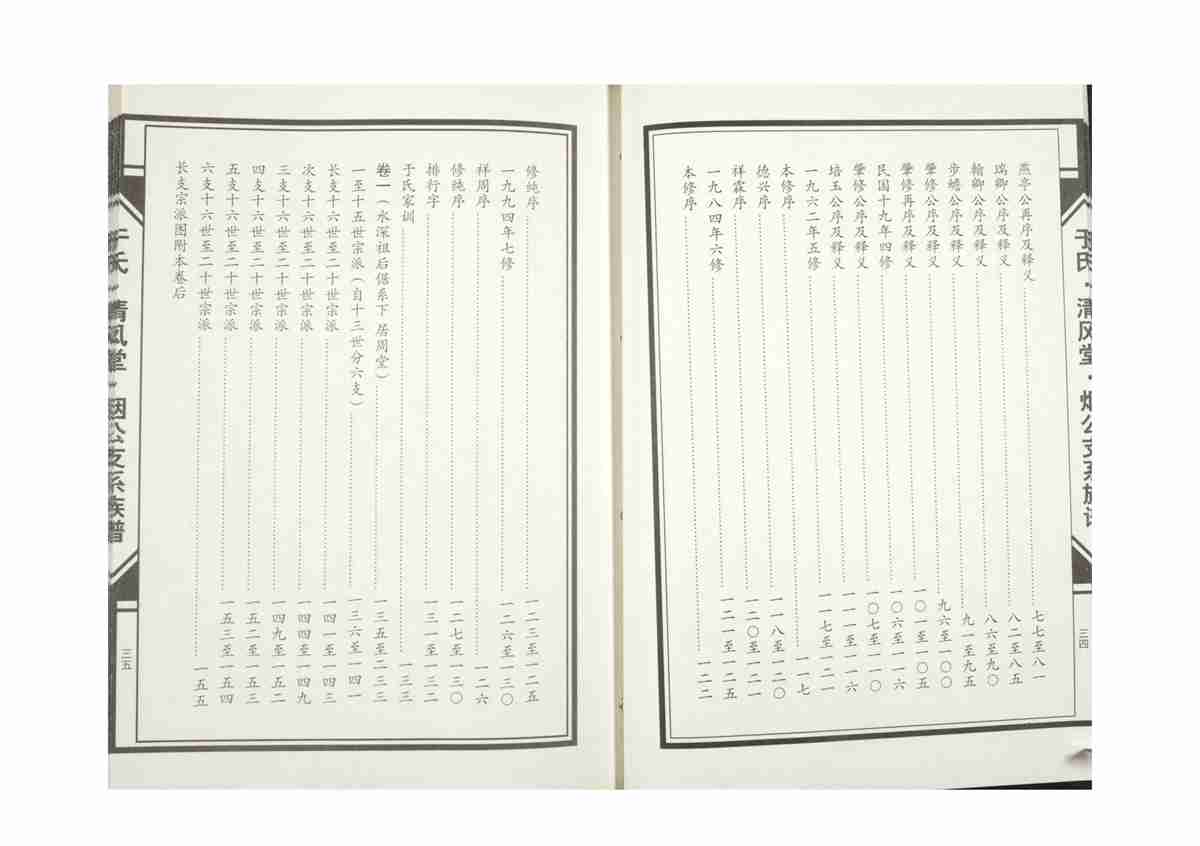 于氏·清风堂·烟公支系族谱
燕亭公再序及释义……七七至八一
瑞卿公序及释义……八二至八五
翰卿公序及释义……八六至九〇
步蟾公序及释义……九一至九五
肇修公序及释义……九六至一〇〇
肇修再序及释义……一〇一至一〇五
民国十九年四修……一〇六至一一六
肇修公序及释义……一〇七至一一〇
培玉公序及释义……一一一至一一六
一九六二年五修……一一七至一二一
本修序……一一七
德兴序……一一八至一二〇
祥霖序……一二〇至一二一
一九八四年六修……一二一至一二五
本修序……一二二
三四
修纯序……一二三至一二五
一九九四年七修……一二六至一三〇
祥周序……一二六
修纯序……一二七至一三〇
排行字……一三一至一三二
于氏家训……一三三
卷一（水深祖后倨系下 居周堂）……一三五至二三三
一至十五世宗派（自十三世分六支）……一三六至一四一
长支十六世至二十世宗派……一四一至一四三
次支十六世至二十世宗派……一四四至一四九
三支十六世至二十世宗派……一四九至一五二
四支十六世至二十世宗派……一五二至一五三
五支十六世至二十世宗派……一五三至一五四
六支十六世至二十世宗派……一五五
长支宗派图附本卷后
于氏·清风堂·烟公支系族谱
三五